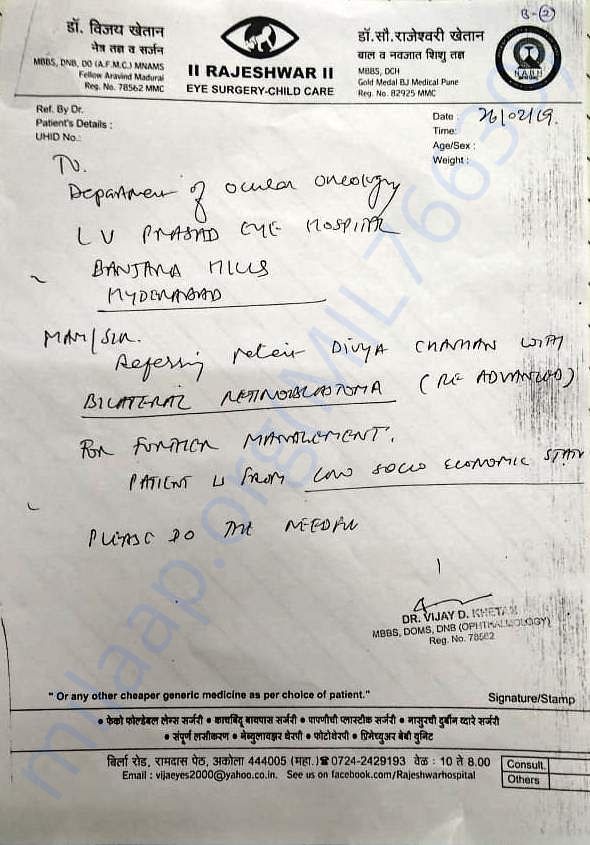 B-(2)
डॉ. विजय खेतान
नेत्र तज्ञ व सर्जन
MBBS, DNB, DO (A.F.M.C.) MNAMS
Fellow Aravind Madurai
Reg. No. 78562 MMC
II RAJESHWAR II
EYE SURGERY-CHILD CARE
डॉ.सौ.राजेश्वरी खेतान
बाल व नवजात शिशु तज्ञ
MBBS, DCH
Gold Medal BJ Medical Pune
Reg. No. 82925 MMC
NABH
Ref. By Dr.
Patient's Details :
UHID No.:
Date : 26/02/19.
Time:
Age/Sex :
Weight :
To.
Department of ocular oncology
LV PRASAD EYE HOSPITAL
BANJARA HILLS
HYDERABAD
MAM/SIR.
Referring DIVYA CHAVHAN WITH
BILATERAL RETINOBLASTOMA (RE ADVANCED)
FOR FURTHER MANAGEMENT.
PATIENT IS FROM LOW SOCIO ECONOMIC
PLEASE DO THE NEEDFUL
DR. VIJAY D. KHETAN
MBBS, DOMS, DNB (OPHTHALMOLOGY)
Reg. No. 78562
" Or any other cheaper generic medicine as per choice of patient."
Signature/Stamp
• फेको फोल्डेबल लेन्स सर्जरी • काचबिंदू बायपास सर्जरी • पापणीची प्लास्टीक सर्जरी • नासुरची दुर्बीन व्दारे सर्जरी
• संपूर्ण लसीकरण • नेब्युलायझर थेरपी • फोटोथेरपी • प्रिमेच्युअर बेबी युनिट
बिर्ला रोड, रामदास पेठ, अकोला 444005 (महा.) ☎ 0724-2429193 वेळ : 10 ते 8.00
Email : vijaeyes2000@yahoo.co.in. See us on facebook.com/Rajeshwarhospital
Consult.
Others